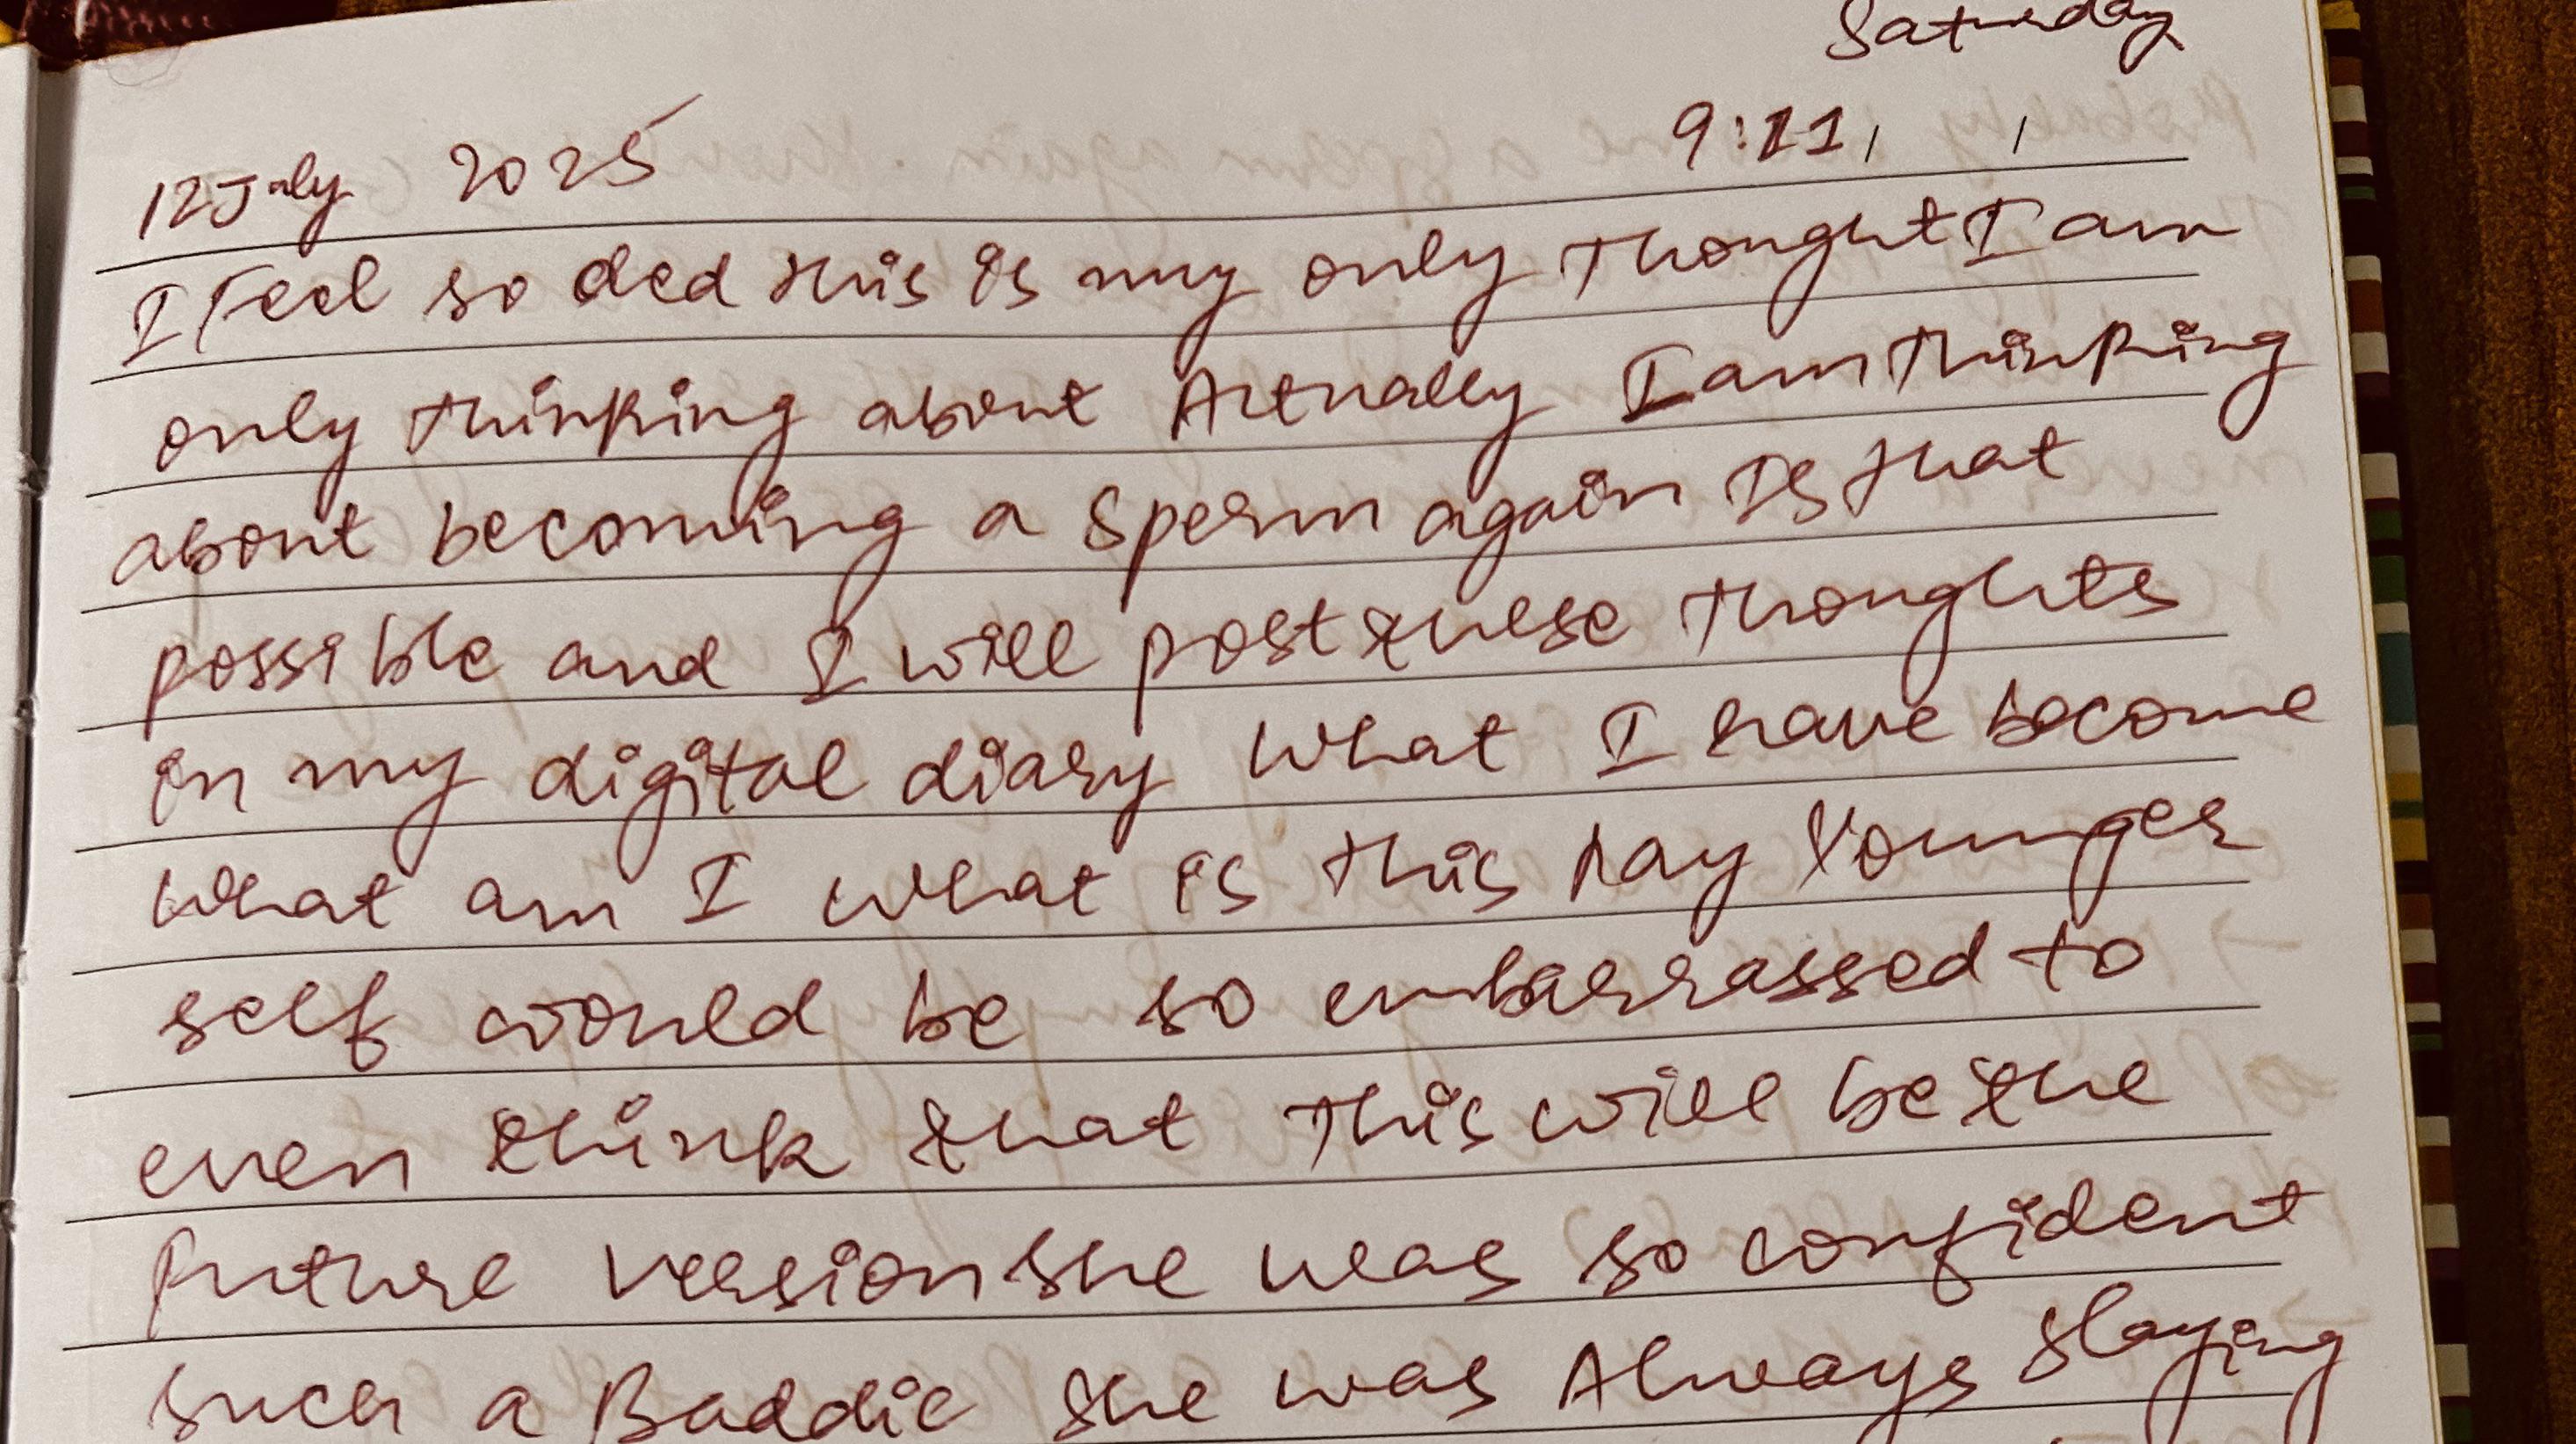 Saturday
9:11
12 July 2025
I Feel so ded this is my only thought I am
only thinking about Actually I am thinking
about becoming a sperm again Is that
possible and I will post these thoughts
in my digital diary What I have become
what am I what is this my Younger
self would be so embarrassed to
even think that this will be the
future version she was so confident
such a Baddie she was Always slaying